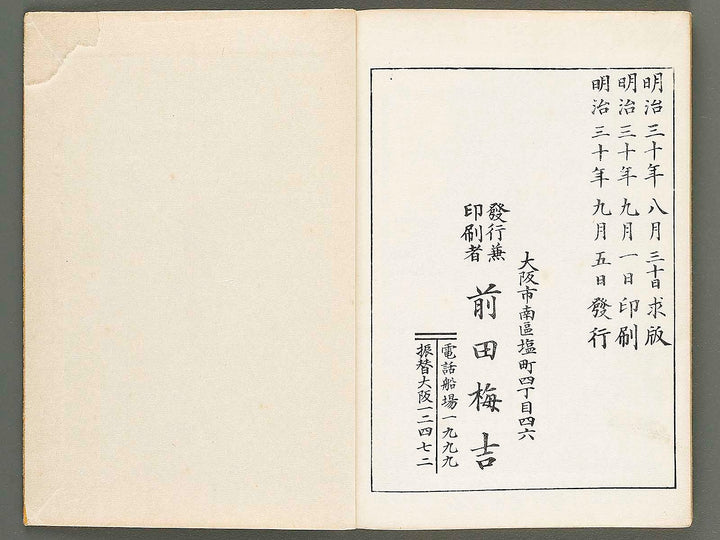 明治三十年八月三十日求版
明治三十年九月一日印刷
明治三十年九月五日發行
大阪市南區塩町四丁目四六
發行兼
印刷者
前田梅吉
電話船場一九九九
振替大阪一二四七二